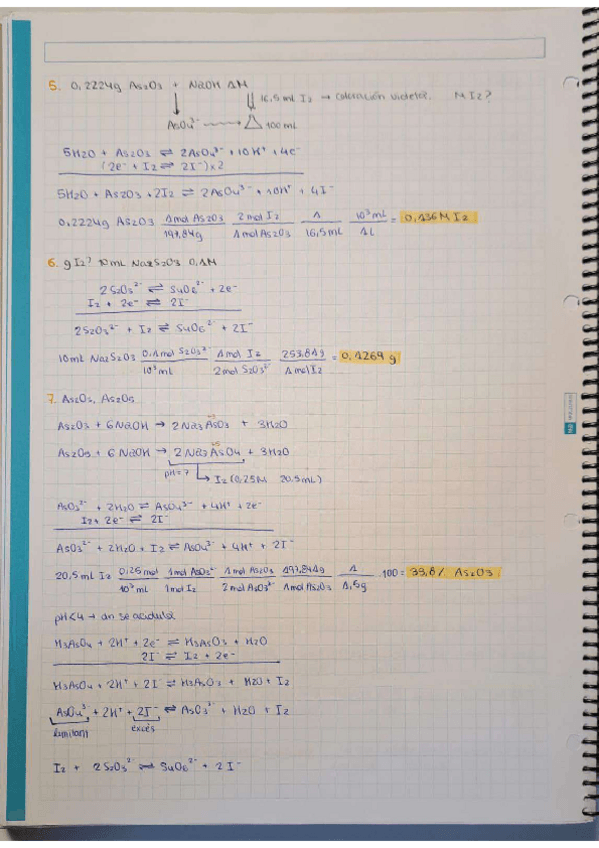 5. 0,2224g As2O3 + NaOH 1M
16,5 mL I2 → Coloración violeta. M I2?
AsO4³⁻ → 100 mL
5H2O + As2O3 ⇌ 2AsO4³⁻ + 10H⁺ + 4e⁻
(2e⁻ + I2 ⇌ 2I⁻)x2
5H2O + As2O3 + 2I2 ⇌ 2AsO4³⁻ + 10H⁺ + 4I⁻
0,2224g As2O3 1mol As2O3/197,84g 2mol I2/1mol As2O3 1/16,5mL 10³mL/1L = 0,136M I2
6. g I2? 10mL Na2S2O3 0,1M
2S2O3²⁻ ⇌ S4O6²⁻ + 2e⁻
I2 + 2e⁻ ⇌ 2I⁻
2S2O3²⁻ + I2 ⇌ S4O6²⁻ + 2I⁻
10mL Na2S2O3 0,1mol S2O3²⁻/10³mL 1mol I2/2mol S2O3²⁻ 253,81g/1mol I2 = 0,1269 g
7. As2O3, As2O5
As2O3 + 6NaOH → 2Na3AsO3 + 3H2O
As2O5 + 6NaOH → 2Na3AsO4 + 3H2O
pH=7
I2 (0,25M 20,5mL)
AsO3³⁻ + 2H2O ⇌ AsO4³⁻ + 4H⁺ + 2e⁻
I2 + 2e⁻ ⇌ 2I⁻
AsO3³⁻ + 2H2O + I2 ⇌ AsO4³⁻ + 4H⁺ + 2I⁻
20,5 mL I2 0,25mol/10³mL 1mol AsO3³⁻/1mol I2 1mol As2O3/2mol AsO3³⁻ 197,841g/1mol As2O3 1/1,5g 100 = 33,8% As2O3
pH<4 →
H3AsO4 + 2H⁺ + 2e⁻ ⇌ H3AsO3 + H2O
2I⁻ ⇌ I2 + 2e⁻
H3AsO4 + 2H⁺ + 2I⁻ ⇌ H3AsO3 + H2O + I2
AsO4³⁻ + 2H⁺ + 2I⁻ ⇌ AsO3³⁻ + H2O + I2
limitant excés
I2 + 2S2O3²⁻ ⇌ S4O6²⁻ + 2I⁻